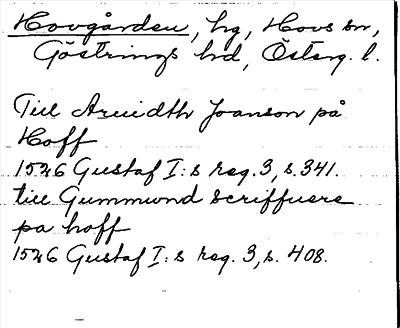 Hovgården, hg, Hovs sn,
Göstrings hd, Österg. l.
Till Aruidth Joanson på
Hoff
1526 Gustaf I:s reg. 3, s. 341.
till Gummund scriffuere
pa hoff
1526 Gustaf I:s reg. 3, s. 408.